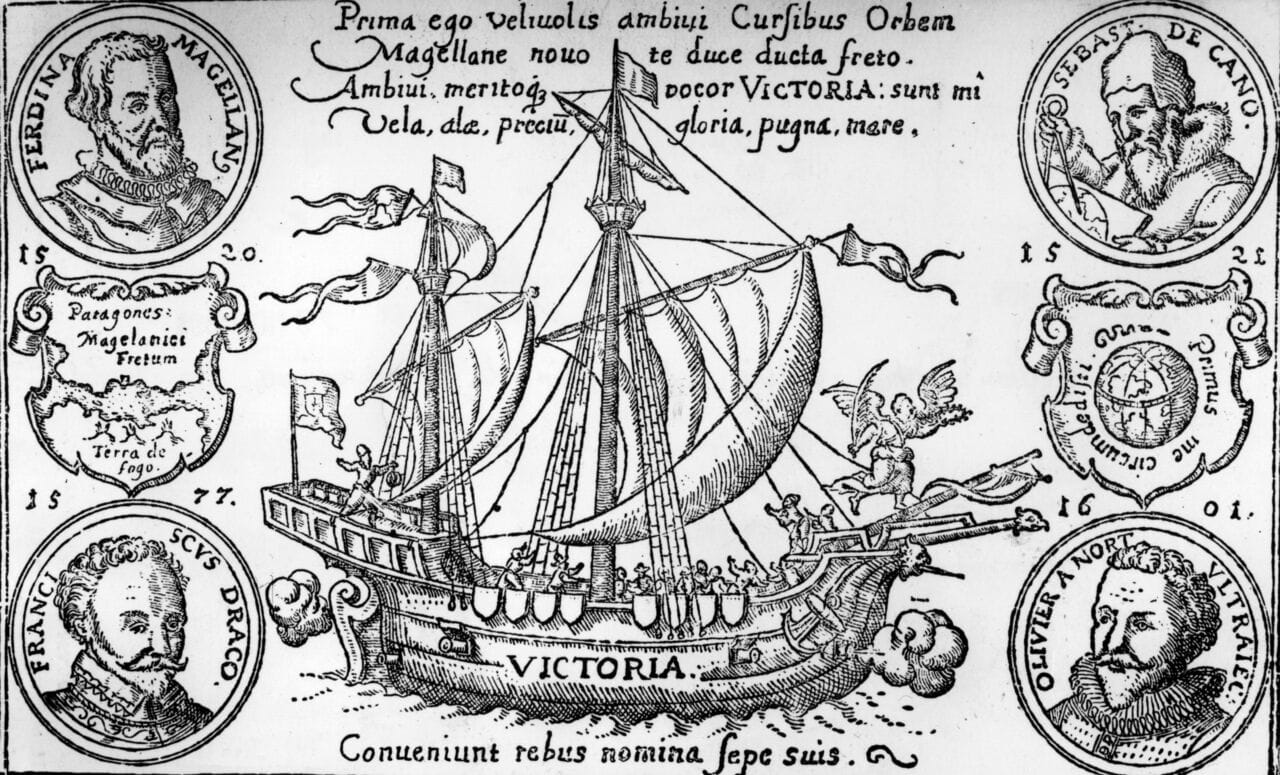 Prima ego veliuolis ambiui Curſibus Orbem
Magellane nouo te duce ducta freto.
Ambiui. meritoqꝫ vocor VICTORIA: sunt mî
Vela, alæ, preciũ, gloria, pugna, mare.
FERDINA MAGELLAN.
SEBAST. DE CANO.
15 20.
15 21
Patagones:
Magelanici
Fretum
Terra de
fogo.
Primus me circumdedisti.
15 77.
16 01.
FRANCISCVS DRACO.
OLIVIER A NORT VLTRAIEC.
VICTORIA.
Conueniunt rebus nomina ſepe suis.